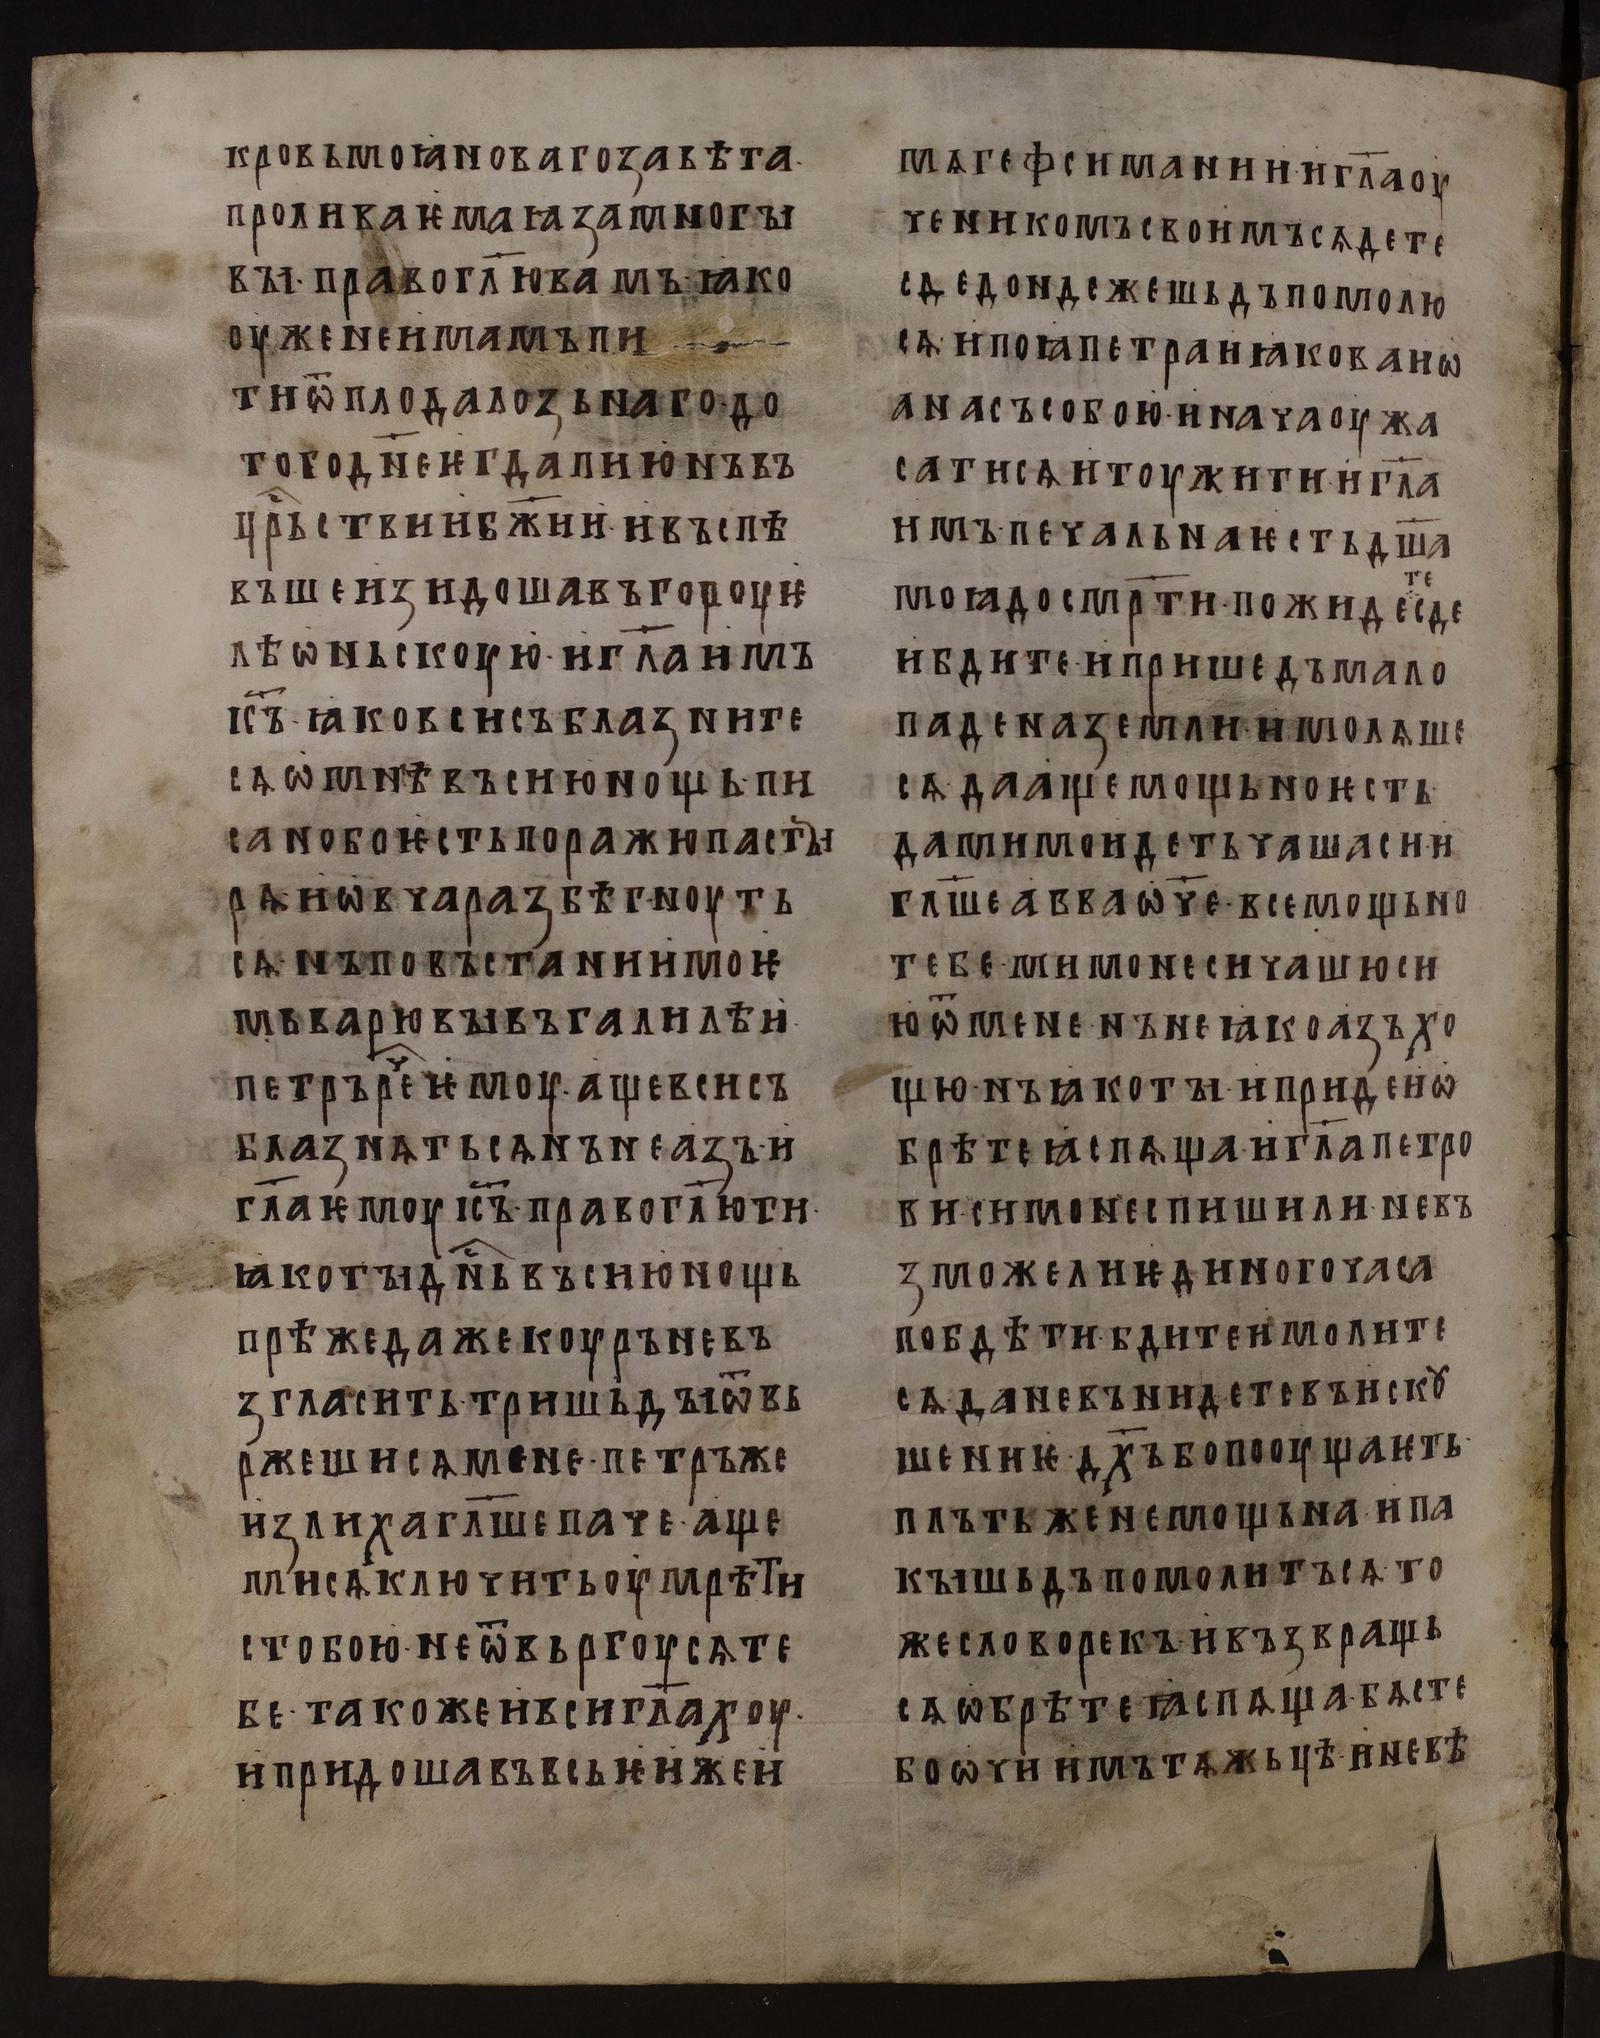 кровьмоꙗновагоꙁавѣта·
проливаѥмаꙗꙁамногꙑ
вꙑ·правогл҃ювамъꙗко
оуженеимамъпи
тиѿплодалоꙁьнаго·до
тогодн҃еѥгдапиюнъвъ
цр҃ьствиибж҃ии·ивъспѣ
въшеиꙁидошавъгороуѥ
лѣѡньскоую·игл҃аимъ
іс҃ъ·ꙗковсисъблаꙁните
сѧѡмнѣвъсиюнощь·пи
санобоѥстьпоражюпастꙑ
рѧиѡвчараꙁбѣгноуть
сѧ·нъповъстаниимое
мьварювꙑвъгалилѣи·
петръреⷱ҇ѥмоу·ащевсисъ
блаꙁнѧтьсѧнънеаꙁъ·и
гл҃аѥмоуіс҃ъ·правогл҃юти·
ꙗкотꙑднⷭ҇ьвъсиюнощь
прѣжедажекоуръневъ
ꙁгласить·тришьдꙑѿвь
ржешисѧмене·петръже
иꙁлихагл҃шепаче·аще
мисѧключитьоумрѣти
стобою·неѿвьргоусѧте
бе·такожеивсигл҃ахоу·
ипридошавъвсьѥижеи
мѧгефсимании·игл҃аоу
ченикомъсвоимъсѧдете
сдедондежешьдъпомолю
сѧ·ипоꙗпетраиꙗковаиѡ
анасъсобою·иначаоужа
сатисѧитоужити·игл҃а
имъ·печальнаѥстьдш҃а
моꙗдосмр҃ти·пожидетесде
ибдите·ипришедъмало
паденаꙁемли·имолѧше
сѧ·даащемощьноѥсть
дамимоидетьчашаси·и
гл҃шеавваѡч҃е·всемощьно
тебе·мимонесичашюси
юѿмене·нънеꙗкоаꙁъхо
щю·нъꙗкотꙑ·ипридеиѡ
брѣтеꙗспѧща·игл҃апетро
ви·симонеспишили·невъ
ꙁможелиѥдиногочаса
побдѣти·бдитеимолите
сѧданевънидетевъискꙋ
шениѥ·дх҃ъбопооущаѥть·
плътьженемощьна·ипа
кꙑшьдъпомолитъсѧ·то
жесловорекъ·ивъꙁвращь
сѧѡбрѣтеꙗспѧща·бѧсте
боѡчиимътѧжьцѣ·иневѣ